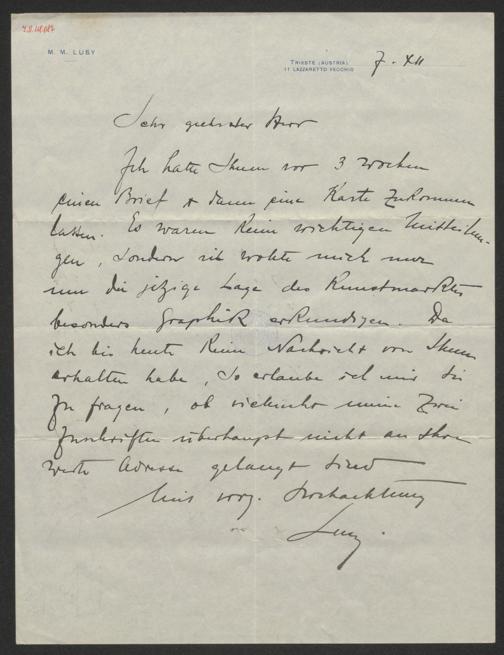 M. M. LUBY
TRIESTE (AUSTRIA)
11 LAZZARETTO VECCHIO
7. XII
Sehr geehrter Herr
Ich hatte Ihnen vor 3 Wochen
einen Brief & dann eine Karte zukommen
lassen. Es waren keine wichtigen Mitteilun-
gen, sondern ich wollte mich nur
um die jetzige Lage des Kunstmarktes
besonders Graphik erkundigen. Da
ich bis heute keine Nachricht von Ihnen
erhalten habe, so erlaube ich mir Sie
zu fragen, ob vielmehr meine zwei
Zuschriften überhaupt nicht an Ihre
werte Adresse gelangt sind
Mit vorz. Hochachtung
Luby.